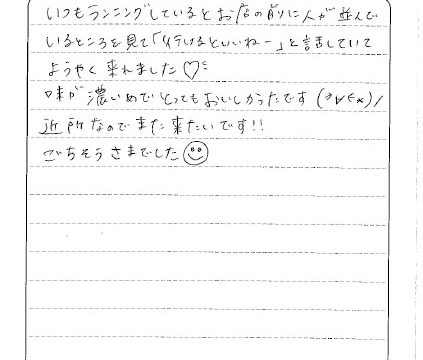 いつもランニングしているとお店の前に人が並んで
いるところを見て「行けるといいねー」と話していて
ようやく来れました♡
味が濃いめでとってもおいしかったです(*>∀<*)ﾉ
近所なのでまた来たいです!!
ごちそうさまでした☺